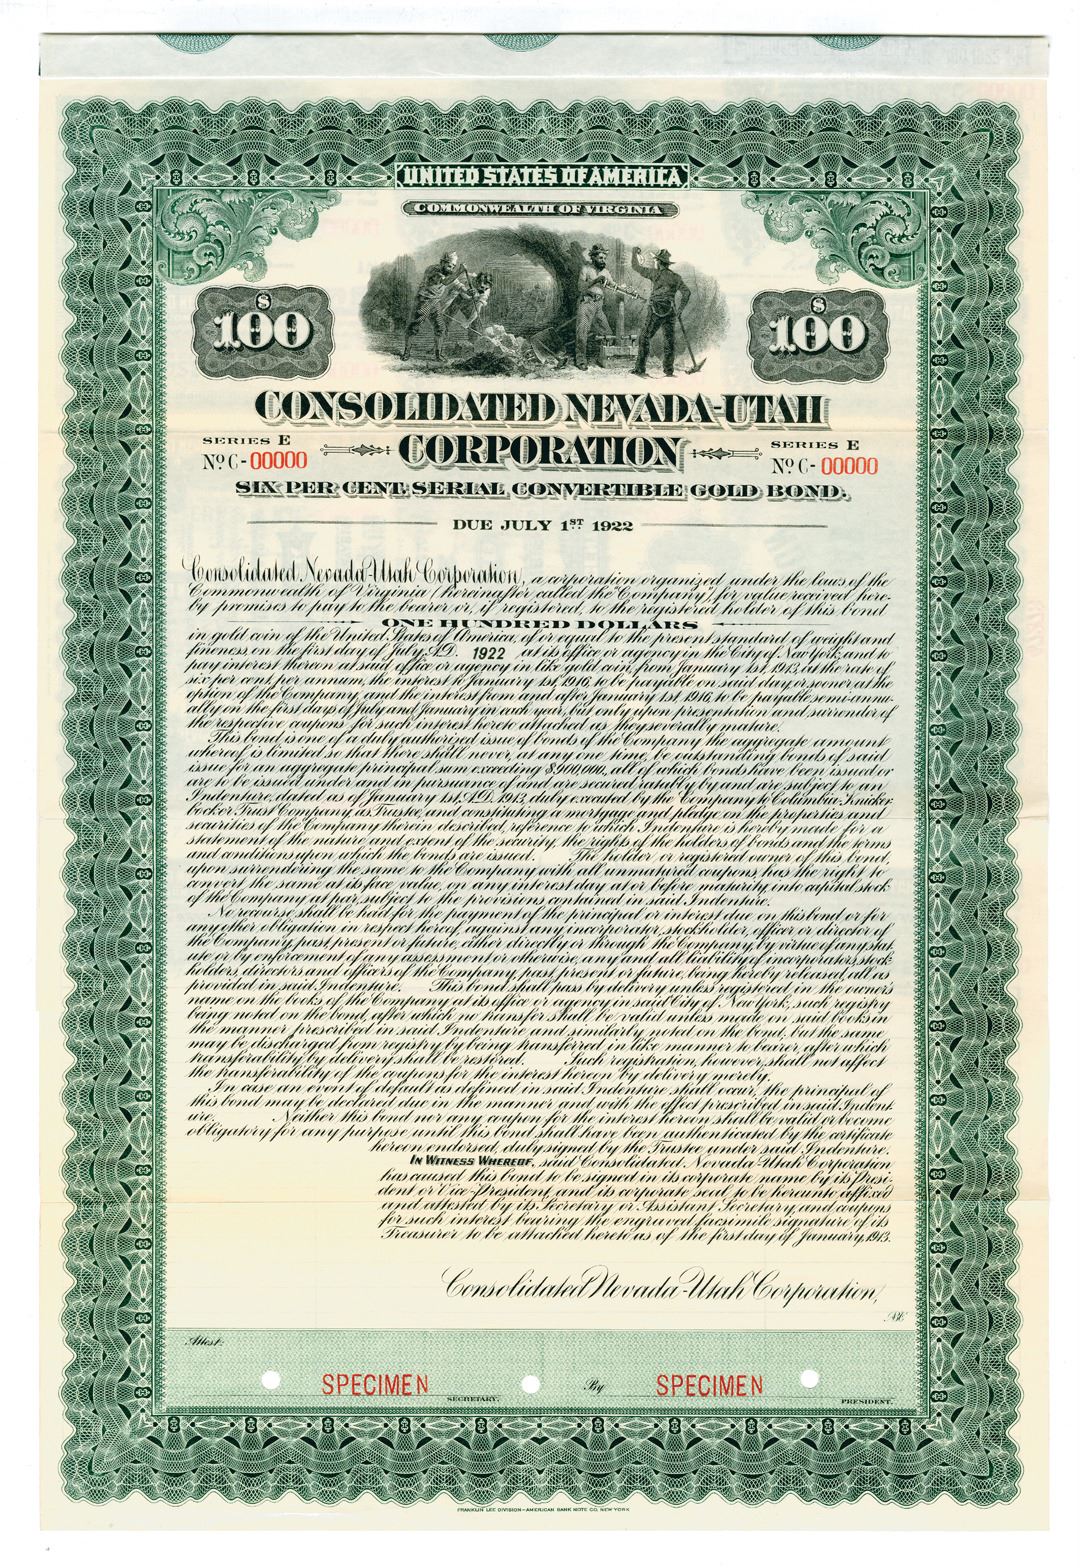 UNITED STATES OF AMERICA
COMMONWEALTH OF VIRGINIA
$ 100
$ 100
CONSOLIDATED NEVADA-UTAH
SERIES E
CORPORATION
SERIES E
No C-00000
No C-00000
SIX PER CENT. SERIAL CONVERTIBLE GOLD BOND.
DUE JULY 1ST 1922
Consolidated Nevada-Utah Corporation, a corporation organized under the laws of the
Commonwealth of Virginia (hereinafter called the "Company") for value received here-
by promises to pay to the bearer, or, if registered, to the registered holder of this bond
ONE HUNDRED DOLLARS
in gold coin of the United States of America, of or equal to the present standard of weight and
fineness, on the first day of July A.D. 1922 at its office or agency in the City of New York, and to
pay interest thereon at said office or agency in like gold coin, from January 1st, 1913, at the rate of
six per cent. per annum, the interest to January 1st, 1916, to be payable on said day or sooner at the
option of the Company, and the interest from and after January 1st 1916, to be payable semi-annu-
ally on the first days of July and January in each year, but only upon presentation and surrender of
the respective coupons for such interest hereto attached as they severally mature.
This bond is one of a duly authorized issue of bonds of the Company the aggregate amount
whereof is limited so that there shall never, at any one time, be outstanding bonds of said
issue for an aggregate principal sum exceeding $900,000, all of which bonds have been issued or
are to be issued under and in pursuance of and are secured ratably by and are subject to an
Indenture, dated as of January 1st, A.D. 1913, duly executed by the Company to Columbia-Knicker-
bocker Trust Company, as Trustee, and constituting a mortgage and pledge on the properties and
securities of the Company therein described, reference to which Indenture is hereby made for a
statement of the nature and extent of the security, the rights of the holders of bonds and the terms
and conditions upon which the bonds are issued. The holder or registered owner of this bond,
upon surrendering the same to the Company with all unmatured coupons, has the right to
convert the same at its face value, on any interest day at or before maturity, into capital stock
of the Company at par, subject to the provisions contained in said Indenture.
No recourse shall be had for the payment of the principal or interest due on this bond or for
any other obligation in respect hereof, against any incorporator, stockholder, officer or director of
the Company, past, present or future, either directly or through the Company, by virtue of any stat-
ute or by enforcement of any assessment or otherwise, any and all liability of incorporators, stock-
holders, directors and officers of the Company, past, present or future, being hereby released, all as
provided in said Indenture. This bond shall pass by delivery unless registered in the owner's
name on the books of the Company at its office or agency in said City of New York, such registry
being noted on the bond, after which no transfer shall be valid unless made on said books in
the manner prescribed in said Indenture and similarly noted on the bond, but the same
may be discharged from registry by being transferred in like manner to bearer, after which
transferability by delivery shall be restored. Such registration, however, shall not affect
the transferability of the coupons for the interest hereon by delivery merely.
In case an event of default as defined in said Indenture shall occur, the principal of
this bond may be declared due in the manner and with the effect prescribed in said Indent-
ure. Neither this bond nor any coupon for the interest hereon shall be valid or become
obligatory for any purpose until this bond shall have been authenticated by the certificate
hereon endorsed, duly signed by the Trustee under said Indenture.
IN WITNESS WHEREOF, said Consolidated Nevada-Utah Corporation
has caused this bond to be signed in its corporate name by its Presi-
dent or Vice-President, and its corporate seal, to be hereunto affixed
and attested by its Secretary or Assistant Secretary, and coupons
for such interest bearing the engraved facsimile signature of its
Treasurer to be attached hereto as of the first day of January, 1913.
Consolidated Nevada-Utah Corporation,
Attest:
SPECIMEN
SECRETARY.
By
SPECIMEN
PRESIDENT.
FRANKLIN LEE DIVISION-AMERICAN BANK NOTE CO. NEW YORK